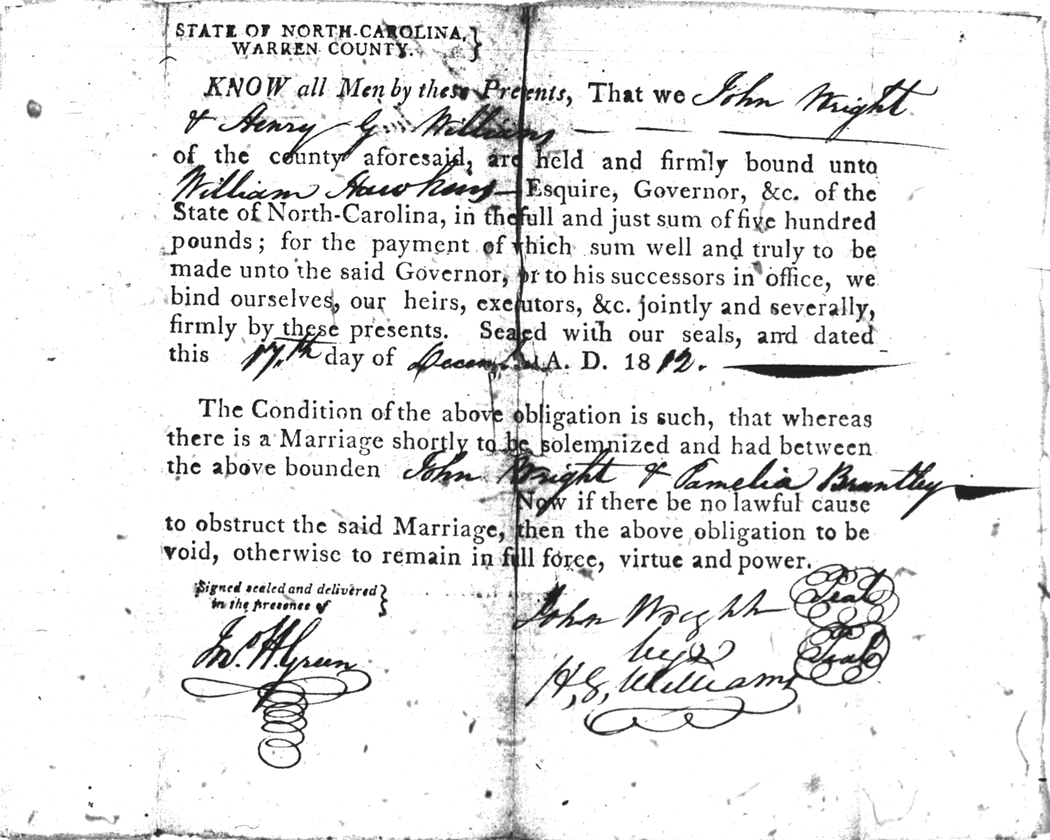 STATE OF NORTH-CAROLINA, }
WARREN COUNTY.
KNOW all Men by these Presents, That we John Wright
& Henry G. Williams
of the county aforesaid, are held and firmly bound unto
William Hawkins Esquire, Governor, &c. of the
State of North-Carolina, in the full and just sum of five hundred
pounds; for the payment of which sum well and truly to be
made unto the said Governor, or to his successors in office, we
bind ourselves, our heirs, executors, &c. jointly and severally,
firmly by these presents. Sealed with our seals, and dated
this 17th day of December A. D. 1812.
The Condition of the above obligation is such, that whereas
there is a Marriage shortly to be solemnized and had between
the above bounden John Wright & Pamelia Brantley
Now if there be no lawful cause
to obstruct the said Marriage, then the above obligation to be
void, otherwise to remain in full force, virtue and power.
Signed sealed and delivered }
in the presence of
Jno. H. Green
John Wright Seal
by
H. G. Williams Seal